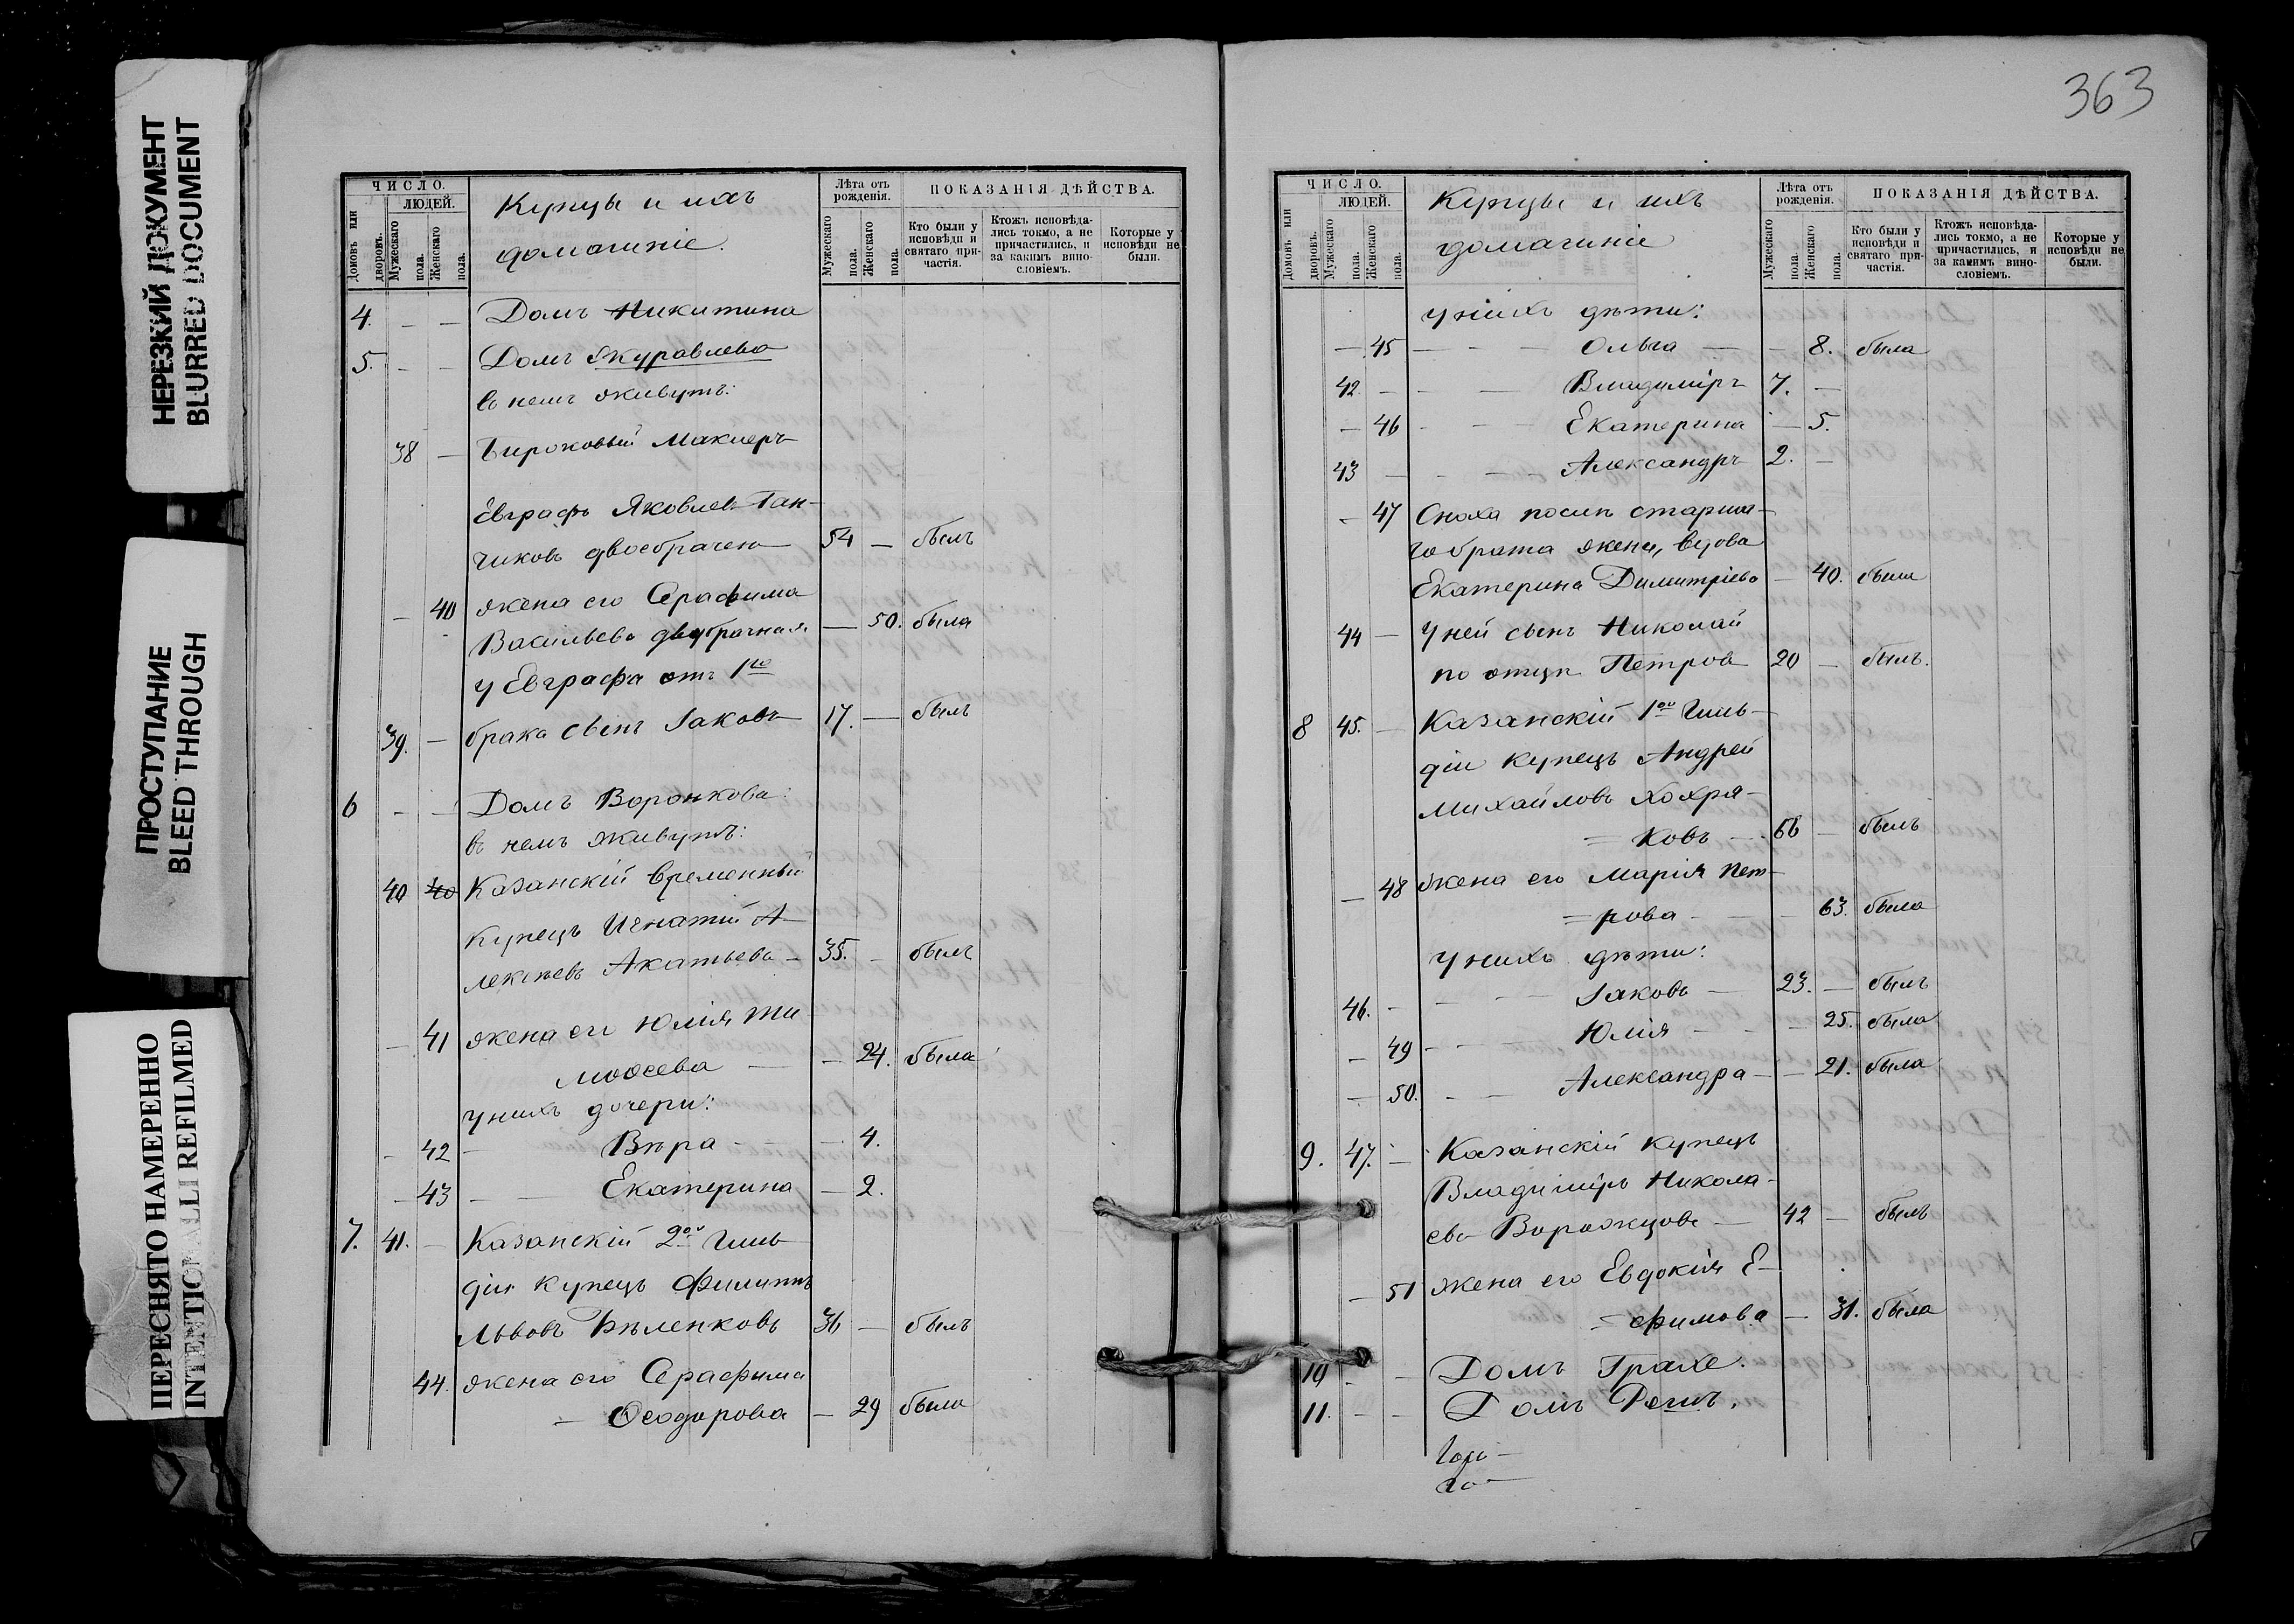 НЕРЕЗКИЙ ДОКУМЕНТ
BLURRED DOCUMENT
ПРОСТУПАНИЕ
BLEED THROUGH
ПЕРЕСНЯТО НАМЕРЕННО
INTENTIONALLI REFILMED
ЧИСЛО.
ЛЮДЕЙ.
Домовъ или дворовъ.
Мужескаго пола.
Женскаго пола.
Купцы и ихъ
домашніе.
Лѣта отъ рожденія.
Мужескаго пола.
Женскаго пола.
ПОКАЗАНІЯ ДѢЙСТВА.
Кто были у исповѣди и святаго при-частія.
Ктожъ исповѣда-лись токмо, а не причастились, и за какимъ вино-словіемъ.
Которые у исповѣди не были.
4. — — Домъ Никитина
5. — — Домъ Журавлева
въ немъ живутъ:
38 — Биржовый Маклеръ
Евграфъ Яковлевъ Ган-
чиковъ двоебрачен 54 — былъ
— 40 жена его Серафима
Васильева двубрачная — 50. была
у Евграфа отъ 1го
39. — брака сынъ Іаковъ 17. — былъ
6 — — Домъ Воронкова:
въ немъ живутъ:
40 40 Казанскій временный
купецъ Игнатій А-
лексѣевъ Акатьевъ — 35. — былъ
— 41 жена его Юлія Ти
моѳеева — — 24. была
у нихъ дочери:
— 42 — Вѣра — — 4.
— 43 — — Екатерина — 2.
7. 41. — Казанскій 2ой Гиль-
діи купецъ Филиппъ
Львовъ Бѣленковъ 36 — былъ
44. жена его Серафима
— Ѳеодорова — 29 была
363
ЧИСЛО.
ЛЮДЕЙ.
Домовъ или дворовъ.
Мужескаго пола.
Женскаго пола.
Купцы и ихъ
домашніе
Лѣта отъ рожденія.
Мужескаго пола.
Женскаго пола.
ПОКАЗАНІЯ ДѢЙСТВА.
Кто были у исповѣди и святаго при-частія.
Ктожъ исповѣда-лись токмо, а не причастились, и за какимъ вино-словіемъ.
Которые у исповѣди не были.
у нихъ дѣти:
— 45 — — — Ольга — — 8. была
42. — — — Владиміръ 7. —
— 46 — — — Екатерина — 5.
43 — — — Александръ 2. —
— 47 Сноха послѣ старша-
го брата жена, вдова
Екатерина Димитріева — 40. была
44 — У ней сынъ Николай
по отцѣ Петровъ 20 — былъ.
8 45. — Казанскій 1ой Гиль-
діи купецъ Андрей
Михайловъ Хохря-
= ковъ — 66 — былъ
— 48 жена его Марія Пет-
= рова — — — 63. была
У нихъ дѣти:
46. — — — Іаковъ — 23. — былъ
— 49 — — — Юлія — — — 25. была
— 50. — — Александра — — 21. была
9. 47. — Казанскій купецъ
Владиміръ Никола-
евъ Ворожцовъ — 42 — былъ
— 51 жена его Евдокія Е-
= фимова — 31. была
10 — — Домъ Грахе.
11. — — Домъ